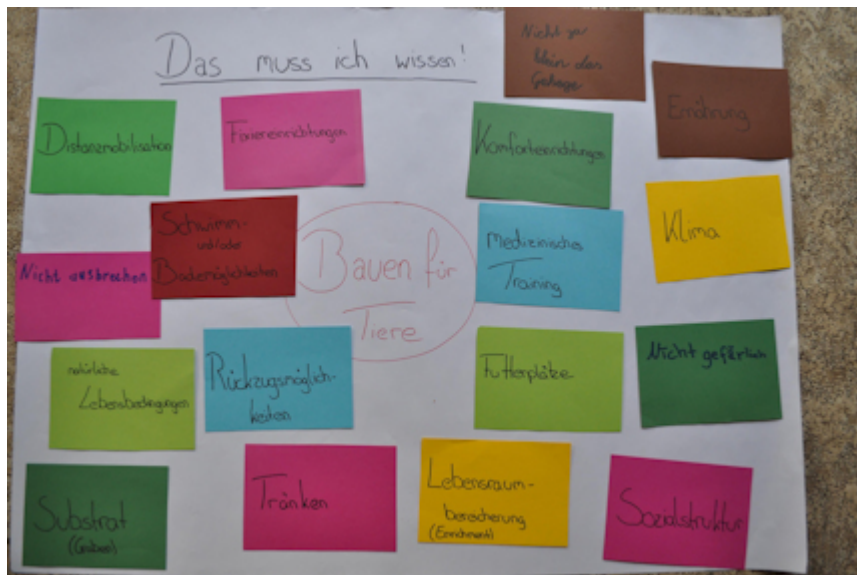 Das muss ich wissen!
Nicht zu
klein das
Gehege
Ernährung
Distanzmobilisation
Fixiereinrichtungen
Komforteinrichtungen
Klima
Schwimm-
und/oder
Bademöglichkeiten
Medizinisches
Training
Nicht ausbrechen
Bauen für
Tiere
natürliche
Lebensbedingungen
Rückzugsmöglich-
keiten
Futterplätze
Nicht gefärlich
Substrat
(Graben)
Tränken
Lebensraum-
bereicherung
(Enrichment)
Sozialstruktur